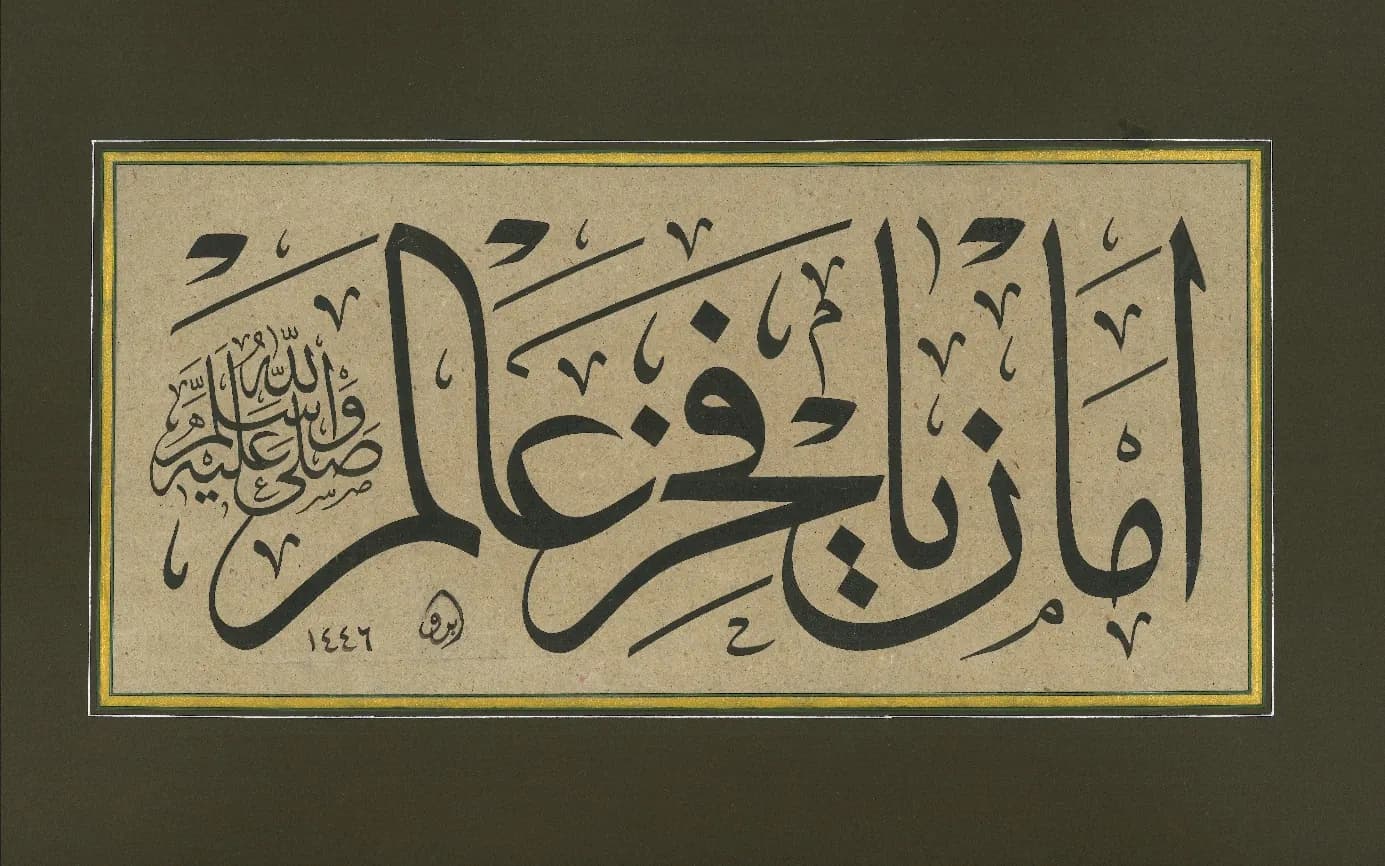 امان یا فخر عالم
صلی الله علیه وسلم
١٤٤٦